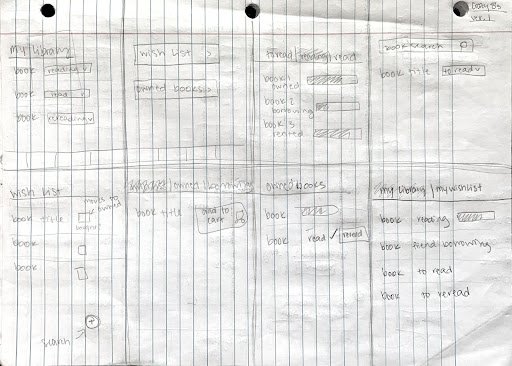 Crazy 8s
ver. 1
My Library
book reading v
book read v
book rereading v
wish list >
owned books >
to read | reading | read
book 1
owned
book 2
borrowing
book 3
rented
book search
book title to read v
wish list
moves to
owned
book title
bought
book
book
search
+
owned | borrowing
book title add to
cart
owned books
book
book read ✓ reread
my library | my wishlist
book reading
book friend borrowing
book to read
book to reread